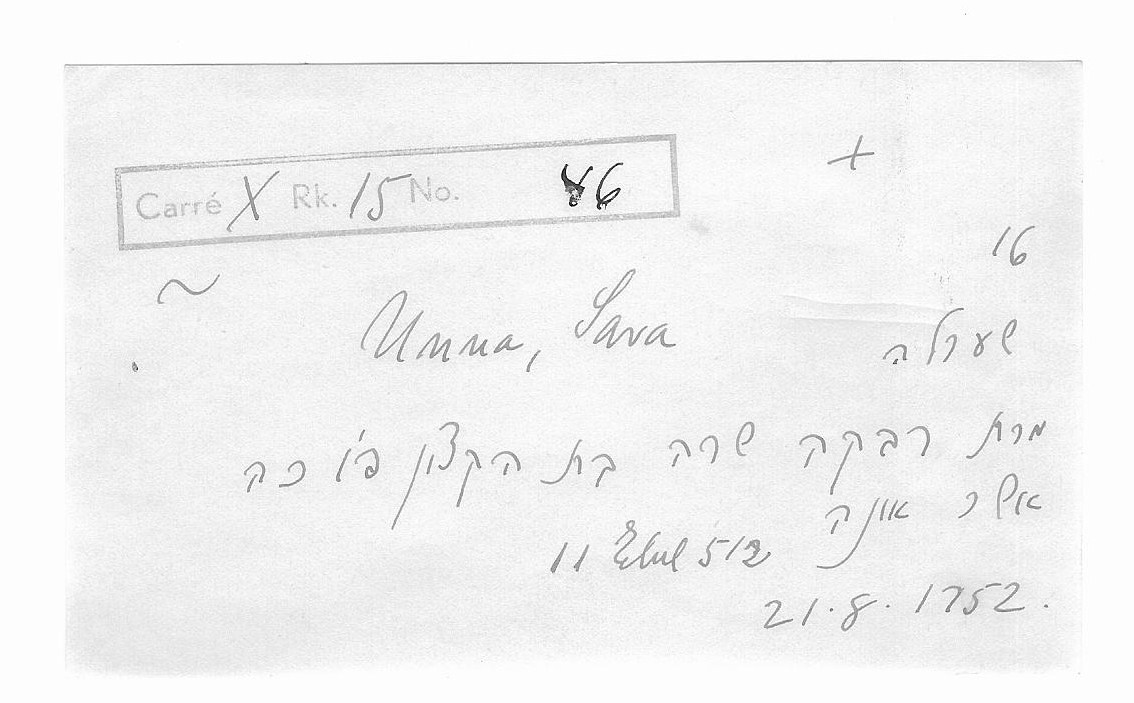 Carré X Rk. 15 No. 46
+
16
~
Unna, Sara שערלה
מרת רבקה שרה בת הקצין פ"ו כה
אשר אונה
11 Elul 512
21.8.1752.